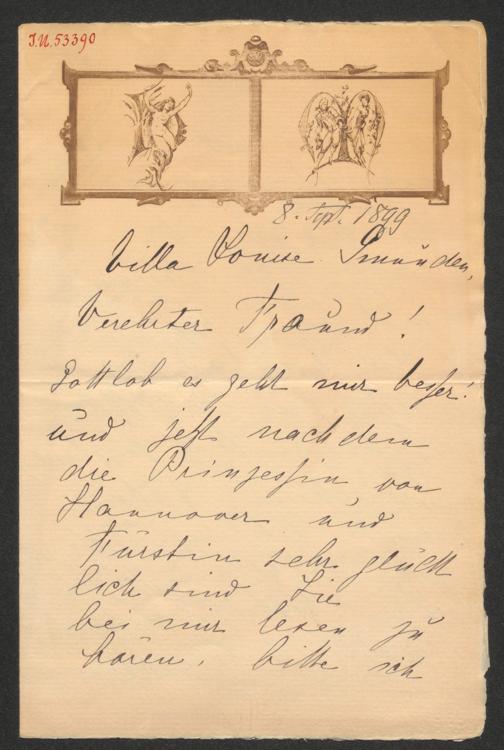 I.N. 53390
8. Sept. 1899
Villa Louise Gmünden,
Verehrter Fraund!
Gottlob es geht mir besser!
und jetzt nachdem
die Prinzessin von
Hannover und
Fürstin sehr glück
lich sind Sie
bei mir lesen zu
hören, bitte ich